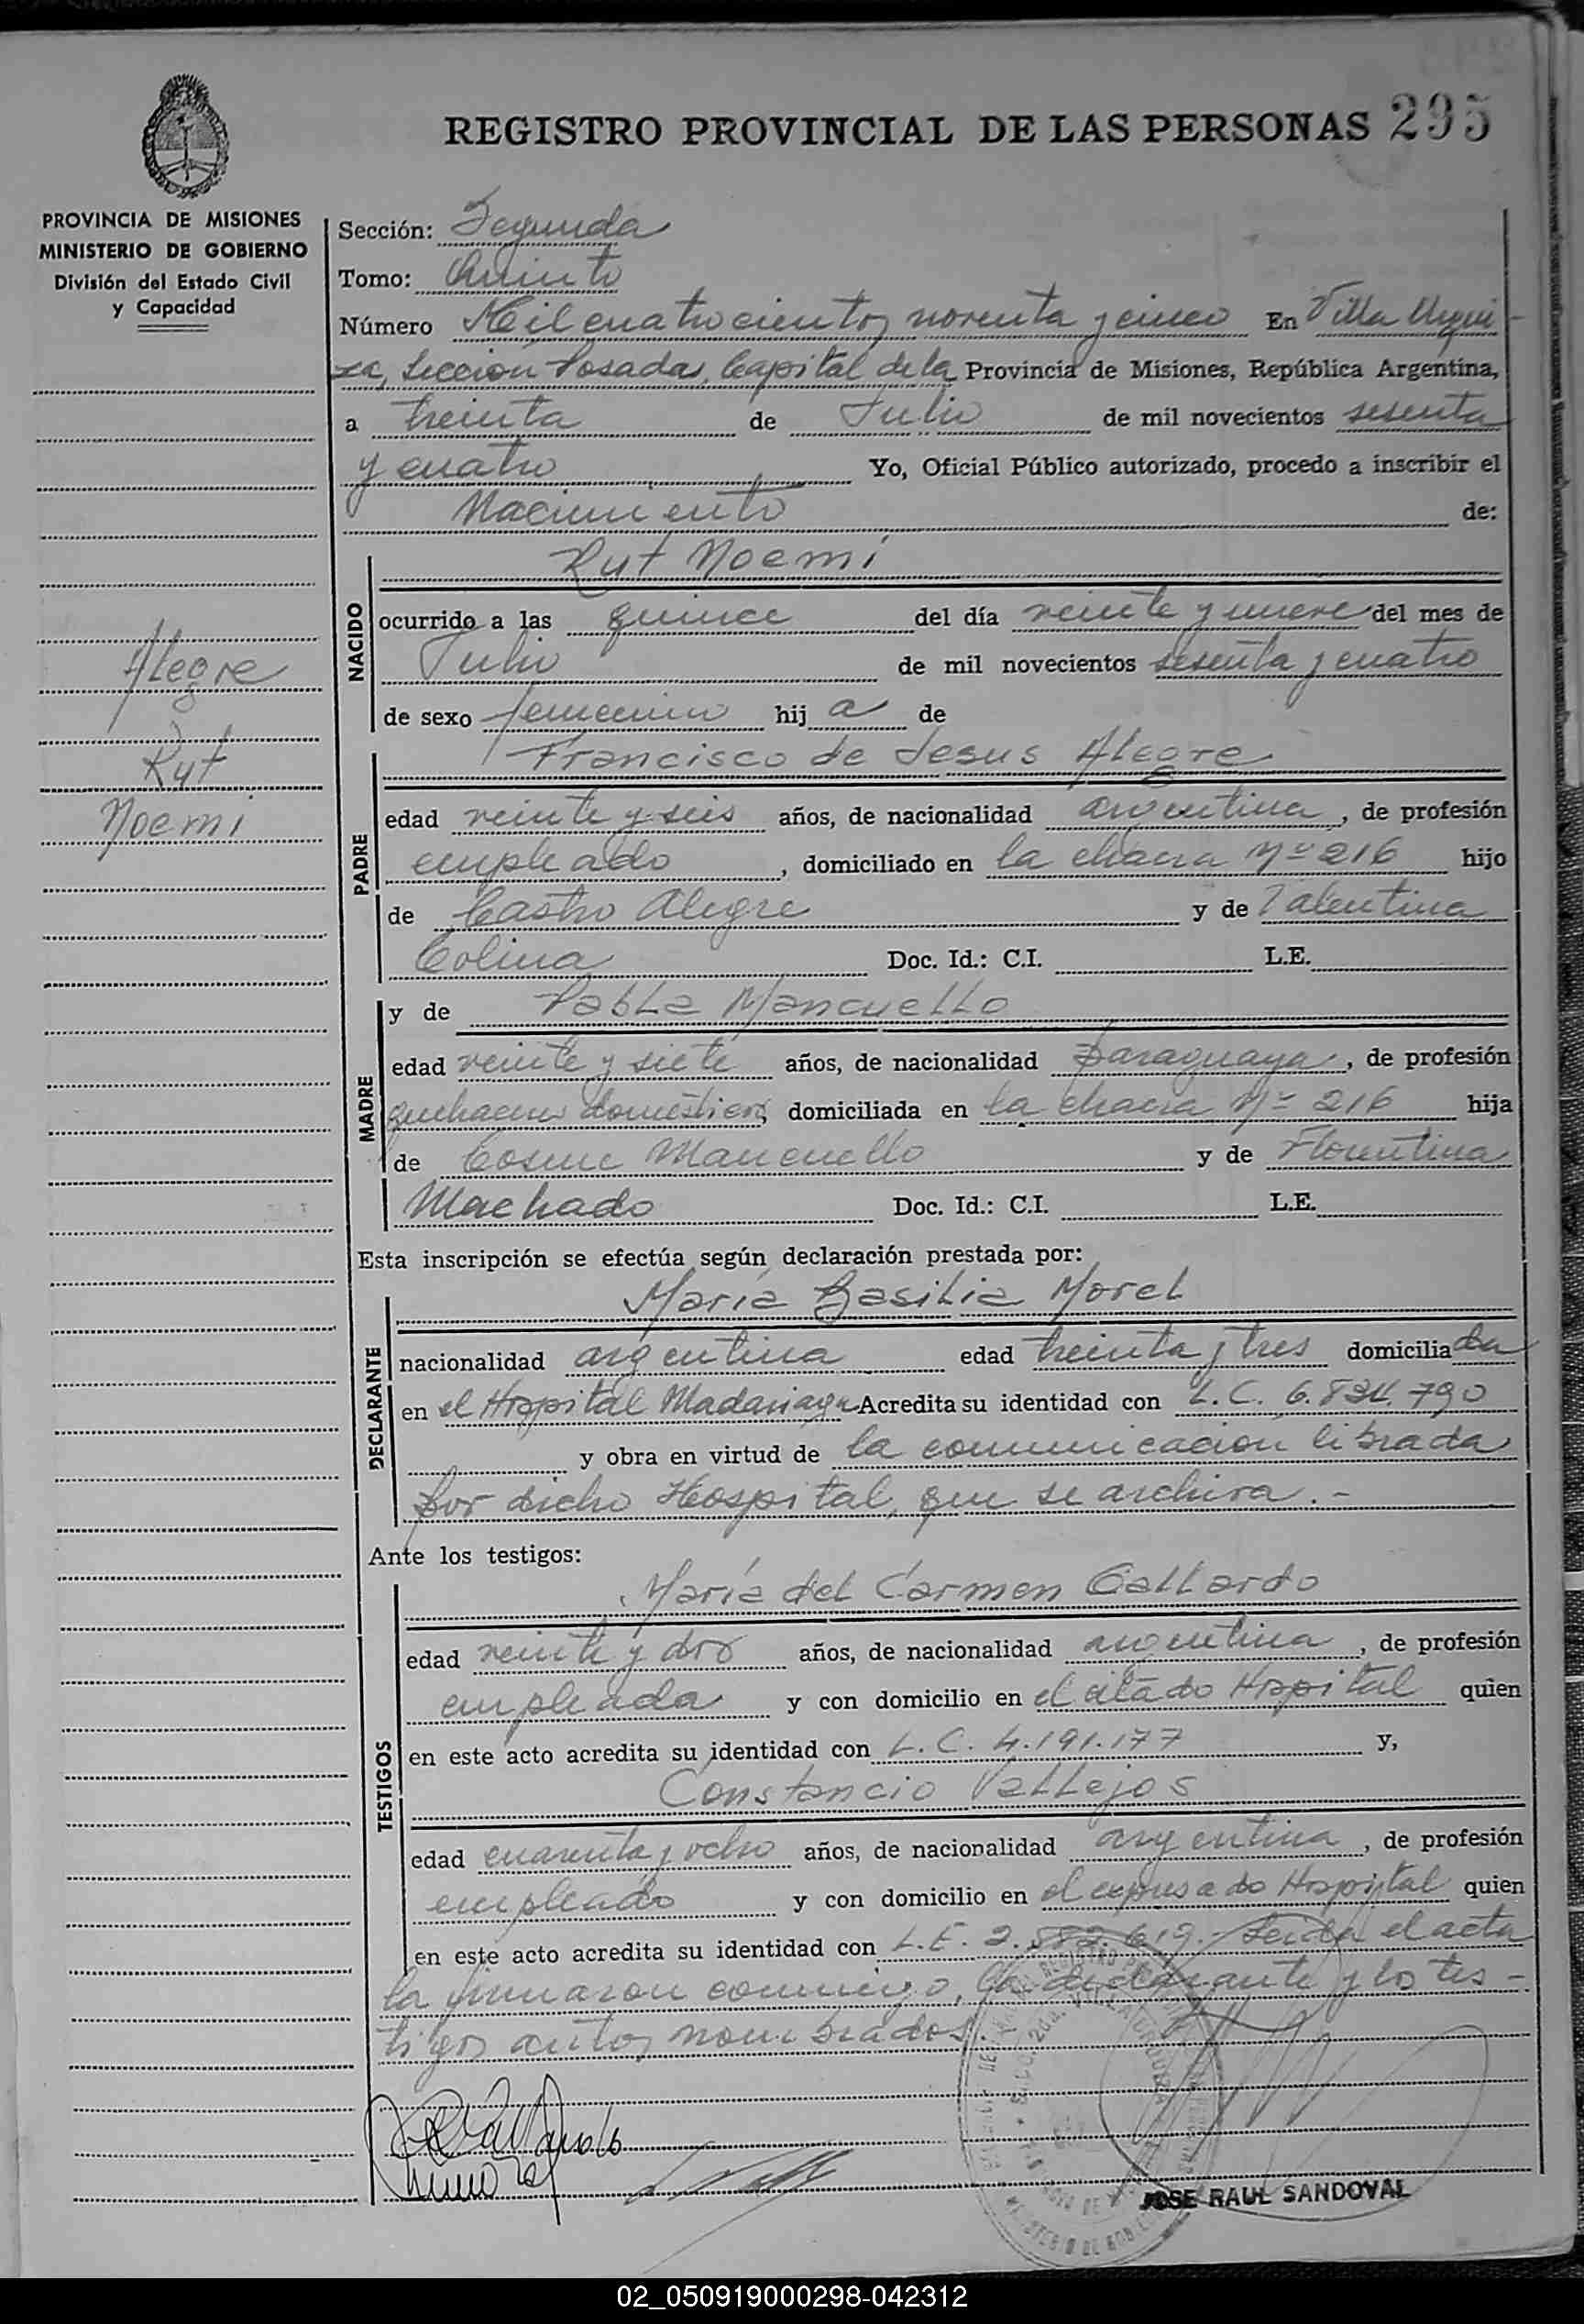 REGISTRO PROVINCIAL DE LAS PERSONAS 295
PROVINCIA DE MISIONES
MINISTERIO DE GOBIERNO
División del Estado Civil
y Capacidad
Alegre
Ryt
Noemi
Sección: Segunda
Tomo: Quinto
Número Mil cuatrocientos noventa y cinco En Villa Urqui
za, Sección Posadas, Capital de la Provincia de Misiones, República Argentina,
a treinta de Julio de mil novecientos sesenta
y cuatro Yo, Oficial Público autorizado, procedo a inscribir el
Nacimiento de:
NACIDO
Ryt Noemí
ocurrido a las quince del día veinte y nueve del mes de
Julio de mil novecientos sesenta y cuatro
de sexo femenino hij a de
PADRE
Francisco de Jesus Alegre
edad veinte y seis años, de nacionalidad argentina, de profesión
empleado, domiciliado en la chacra Nº 216 hijo
de Castro Alegre y de Valentina
Colina Doc. Id.: C.I. L.E.
MADRE
y de Pabla Mancuello
edad veinte y siete años, de nacionalidad paraguaya, de profesión
quehaceres domésticos, domiciliada en la chacra Nº 216 hija
de Cosme Mancuello y de Florentina
Machado Doc. Id.: C.I. L.E.
Esta inscripción se efectúa según declaración prestada por:
DECLARANTE
María Basilia Morel
nacionalidad argentina edad treinta y tres domicilia da
en el Hospital Madariaga Acredita su identidad con L.C. 6.834.790
y obra en virtud de la comunicación librada
por dicho Hospital, que se archiva.-
Ante los testigos:
TESTIGOS
María del Carmen Gallardo
edad veinte y dos años, de nacionalidad argentina, de profesión
empleada y con domicilio en el citado Hospital quien
en este acto acredita su identidad con L.C. 4.191.177 y,
Constancio Vallejos
edad cuarenta y ocho años, de nacionalidad argentina, de profesión
empleado y con domicilio en el expresado Hospital quien
en este acto acredita su identidad con L.E. 2.582.619.- Leida el acta
la firmaron conmigo, la declarante y los tes-
tigos antes nombrados.
JOSE RAUL SANDOVAL
02_050919000298-042312